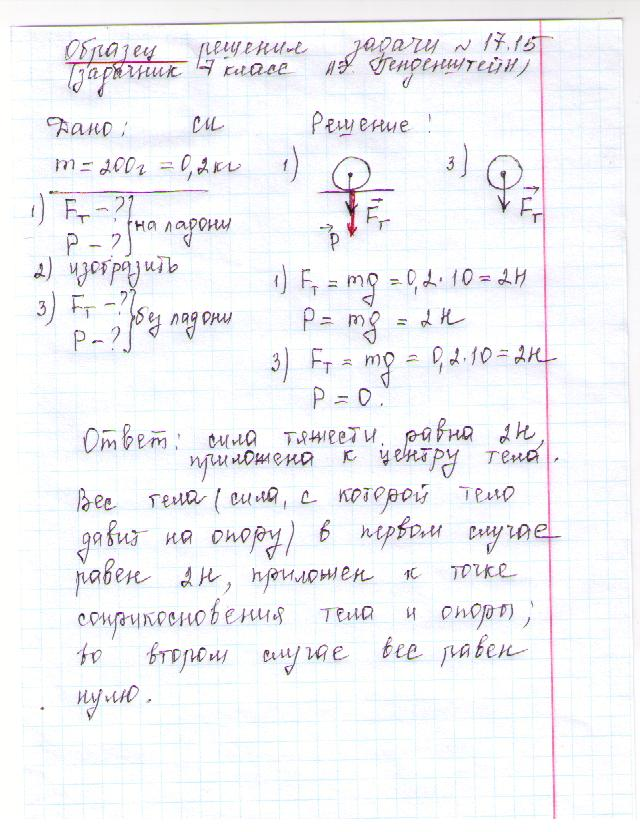 Образец решения задачи № 17.15
(задачник 7 класс Л.Э. Генденштейн)
Дано: СИ Решение:
m = 200г = 0,2кг
1) F_T - ?
P - ? } на ладони
2) изобразить
3) F_T - ?
P - ? } без ладони
1) F_T P
3) F_T
1) F_T = mg = 0,2 · 10 = 2Н
P = mg = 2Н
3) F_T = mg = 0,2 · 10 = 2Н
P = 0.
Ответ: сила тяжести равна 2Н,
приложена к центру тела.
Вес тела (сила, с которой тело
давит на опору) в первом случае
равен 2Н, приложен к точке
соприкосновения тела и опоры;
во втором случае вес равен
нулю.